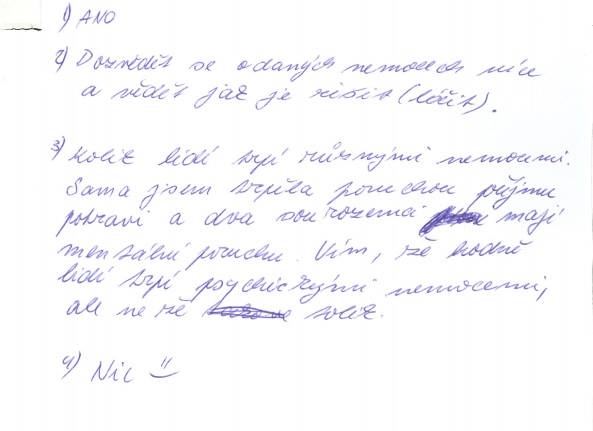 1) ANO
2) Dozvědět se o daných nemocech více
a vědět jak je řešit (léčit).
3) Kolik lidí trpí různými nemocemi.
Sama jsem trpěla poruchou příjmu
potravi a dva sourozenci mají
mentální poruchu. Vím, že hodně
lidí trpí psychickými nemocemi,
ale ne že tolik.
4) Nic